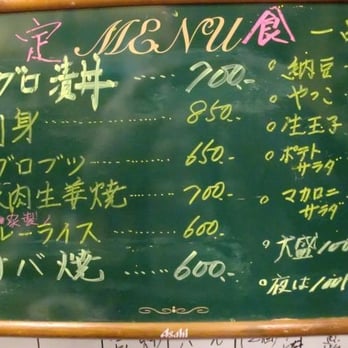 定 MENU 食 一品
グロ漬丼 700.-
身 850.-
グロブツ 650.-
肉生姜焼 700.-
家製
レーライス 600.-
サバ焼 600.-
納豆
やっこ
生玉子
ポテトサラダ
マカロニサラダ
大盛100
夜は100円
Asahi